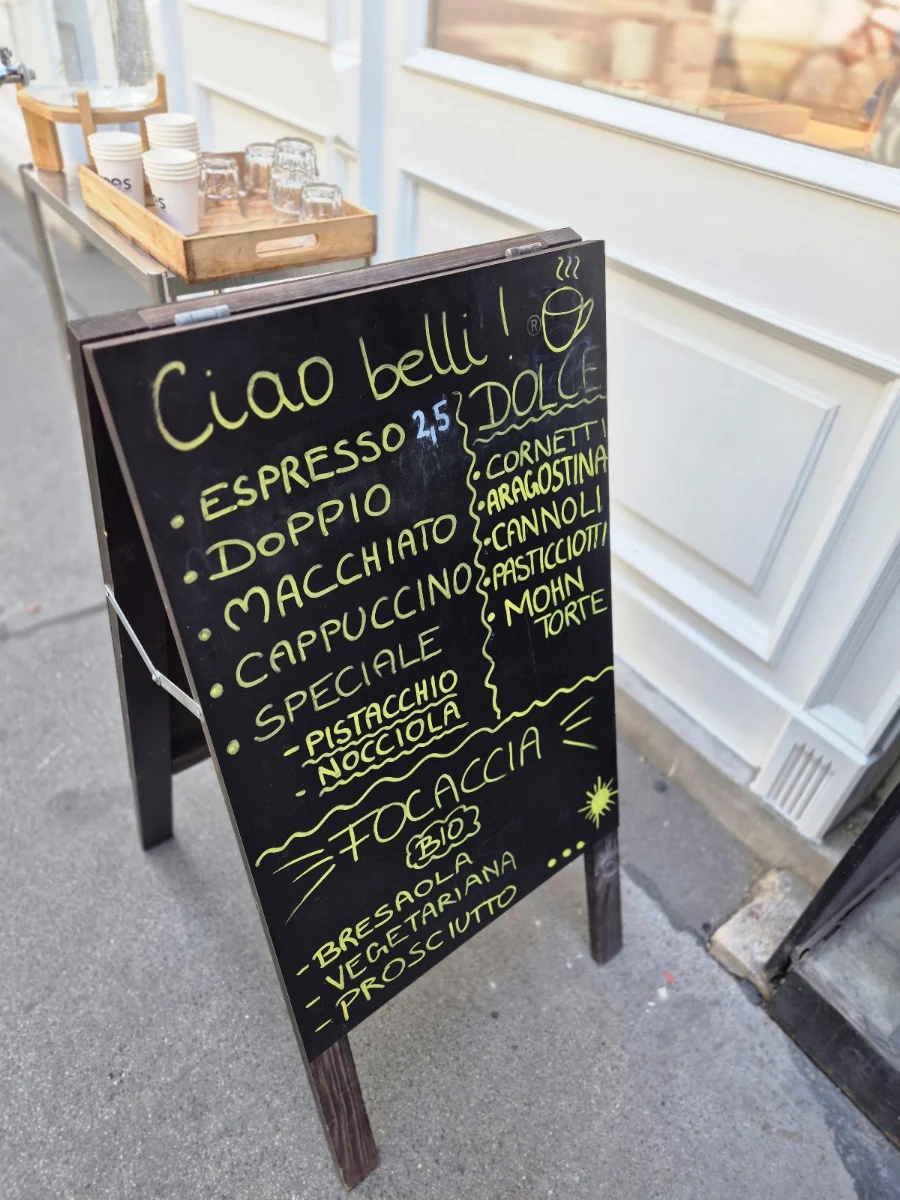 Ciao belli!
®
ESPRESSO 2,5
DOPPIO
MACCHIATO
CAPPUCCINO
SPECIALE
- PISTACCHIO
- NOCCIOLA
DOLCE
CORNETTI
ARAGOSTINA
CANNOLI
PASTICCIOTTI
MOHN
TORTE
FOCACCIA
BIO
- BRESAOLA
- VEGETARIANA
- PROSCIUTTO